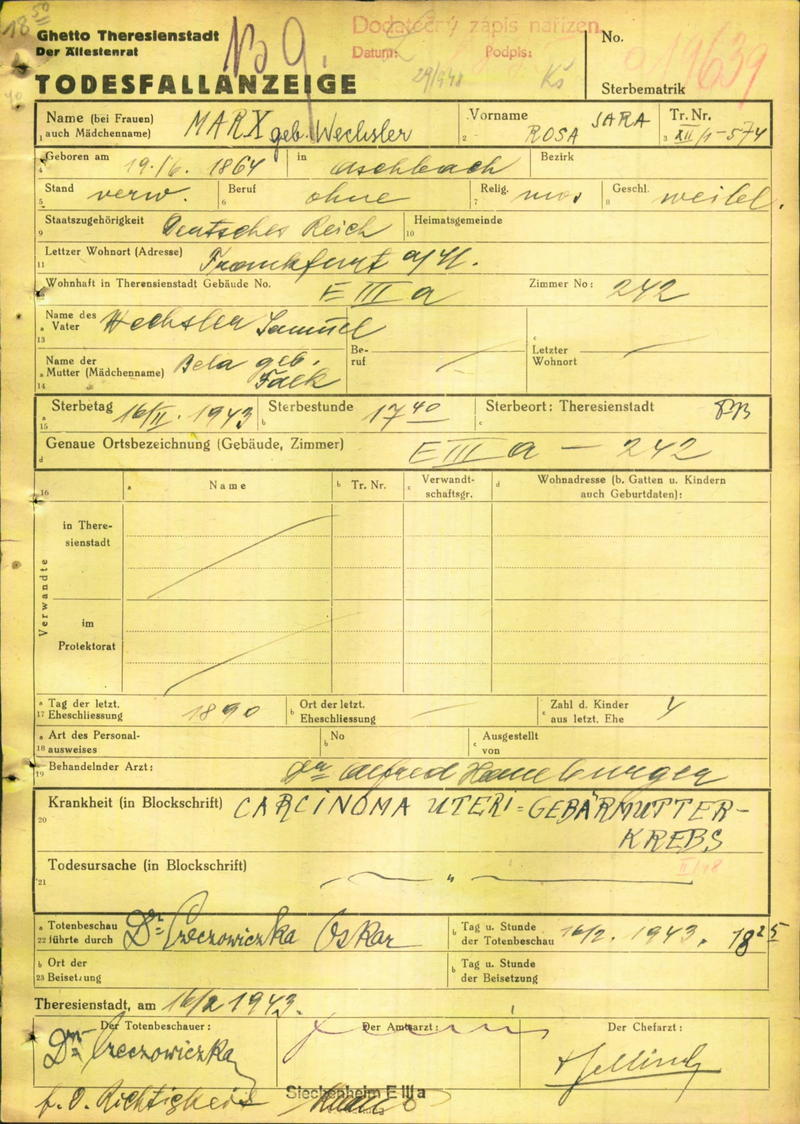 18 50
Ghetto Theresienstadt
Der Ältestenrat
Dodatečný zápis nařízen.
Datum: Podpis:
29/1948
No.
19639
Sterbematrik
TODESFALLANZEIGE
Name (bei Frauen) auch Mädchenname) MARX geb. Wechsler
1
Vorname ROSA SARA
2
Tr. Nr. XII/1-574
3
Geboren am 19./6. 1864 in Aschbach Bezirk
4
Stand verw. Beruf ohne Relig. mos Geschl. weibl.
5 6 7 8
Staatszugehörigkeit Deutsches Reich Heimatsgemeinde
9 10
Lettzer Wohnort (Adresse) Frankfurt a/M.
11
Wohnhaft in Theresienstadt Gebäude No. E III a Zimmer No: 242
Name des Vater Wechsler Samuel
a 13
Name der Mutter (Mädchenname) Bela geb. Falk
a 14
Be-
ruf
c
Letzter
Wohnort
Sterbetag 16/II. 1943 Sterbestunde 17 40 Sterbeort: Theresienstadt
a 15 b c
Genaue Ortsbezeichnung (Gebäude, Zimmer) E III a – 242
d
16 a Name b Tr. Nr. c Verwandt-
schaftsgr. d Wohnadresse (b. Gatten u. Kindern
auch Geburtdaten):
Verwandte
in There-
sienstadt
im
Protektorat
a Tag der letzt.
17 Eheschliessung 1890
b Ort der letzt.
Eheschliessung
c Zahl d. Kinder
aus letzt. Ehe 4
a Art des Personal-
18 ausweises
b No
c Ausgestellt
von
19 Behandelnder Arzt: Dr Alfred Hamburger
Krankheit (in Blockschrift) CARCINOMA UTERI = GEBÄRMUTTER-
KREBS
20
Todesursache (in Blockschrift)
21 — " —
a Totenbeschau
22 führte durch Dr. Czeczowiczka Oskar
b Tag u. Stunde
der Totenbeschau 16/2. 1943. 18 25
b Ort der
23 Beisetzung
b Tag u. Stunde
der Beisetzung
Theresienstadt, am 16/2 1943.
Der Totenbeschauer:
Dr. Czeczowiczka
Der Amtsarzt:
Der Chefarzt:
f. d. Richtigkeit
Siechenheim E III a